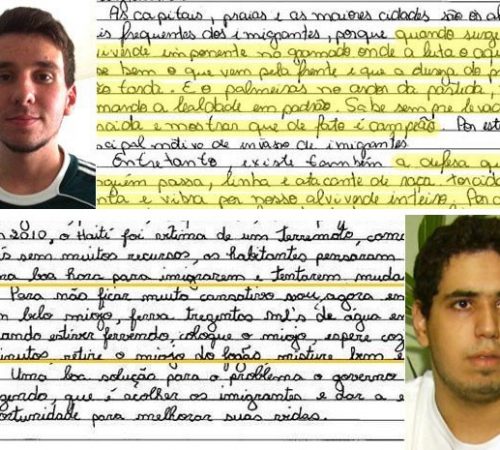 As capitais, praias e as maiores cidades são os al
is frequentes dos imigrantes, porque quando surge
viverde imponente no gramado onde a luta o agu
be bem o que vem pela frente e que a dureza do pr
ão tarda. E o palmeiras no ardor da partida,
mando a lealdade em padrão. Sabe sempre leva
ncida e mostrar que de fato é campeão. Por est
cipal motivo de invasão de imigrantes.
Entretanto, existe também a defesa qu
guém passa, linha e atacante de raça. torcid
nta e vibra por nosso alviverde inteiro. Por c
2010, o Haiti foi vítima de um terremoto, como
is sem muitos recursos, os habitantes pensaram
ma boa hora para imigrarem e tentarem muda
Para não ficar muito cansativo vou agora en
m belo miojo, ferva trezentos ml's de água em
uando estiver fervendo, coloque o miojo, espere coz
inutos, retire o miojo do fogão, misture bem e
Uma boa solução para o problema o governo
zendo, que é acolher os imigrantes e dar a e
ortunidade para melhorar suas vidas.